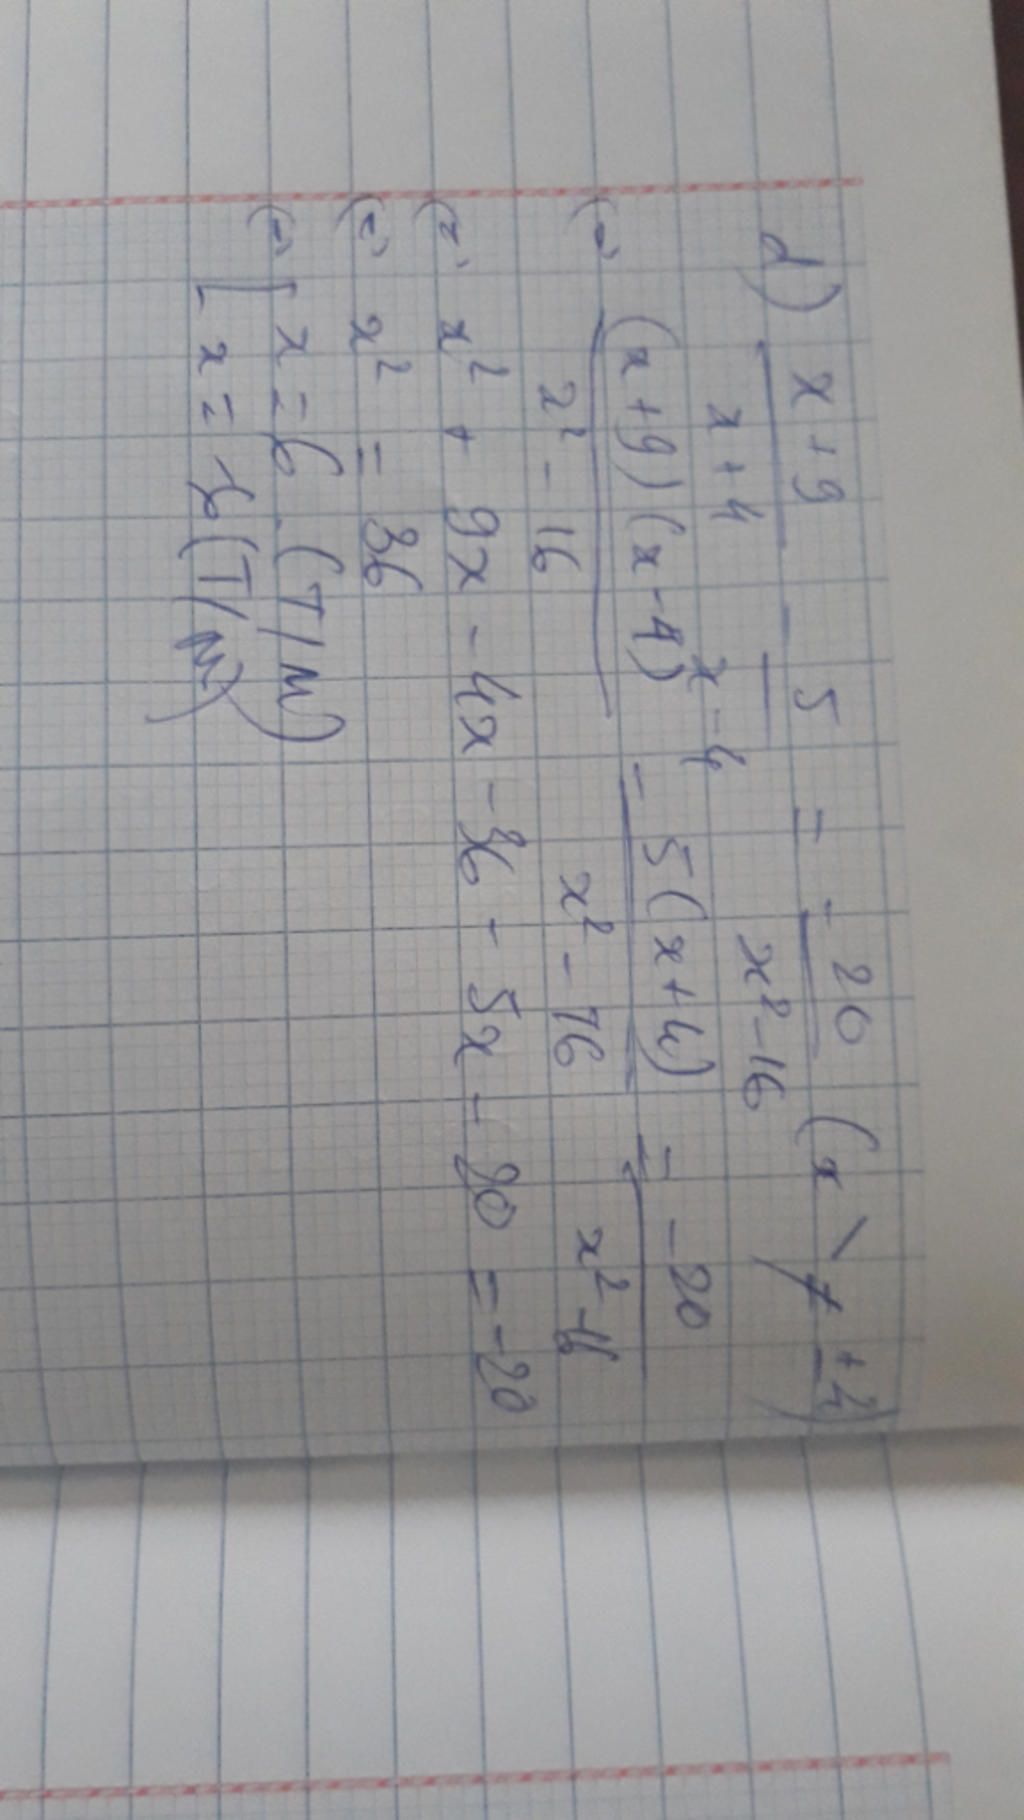 d) x+9 / x+4 - 5 / x-4 = -20 / x²-16 (x ≠ ±4)
(=) (x+9)(x-4) / x²-16 - 5(x+4) / x²-16 = -20 / x²-16
(=) x² + 9x - 4x - 36 - 5x - 20 = -20
(=) x² = 36
(=) [ x = 6 (T/M)
[ x = -6 (T/M)